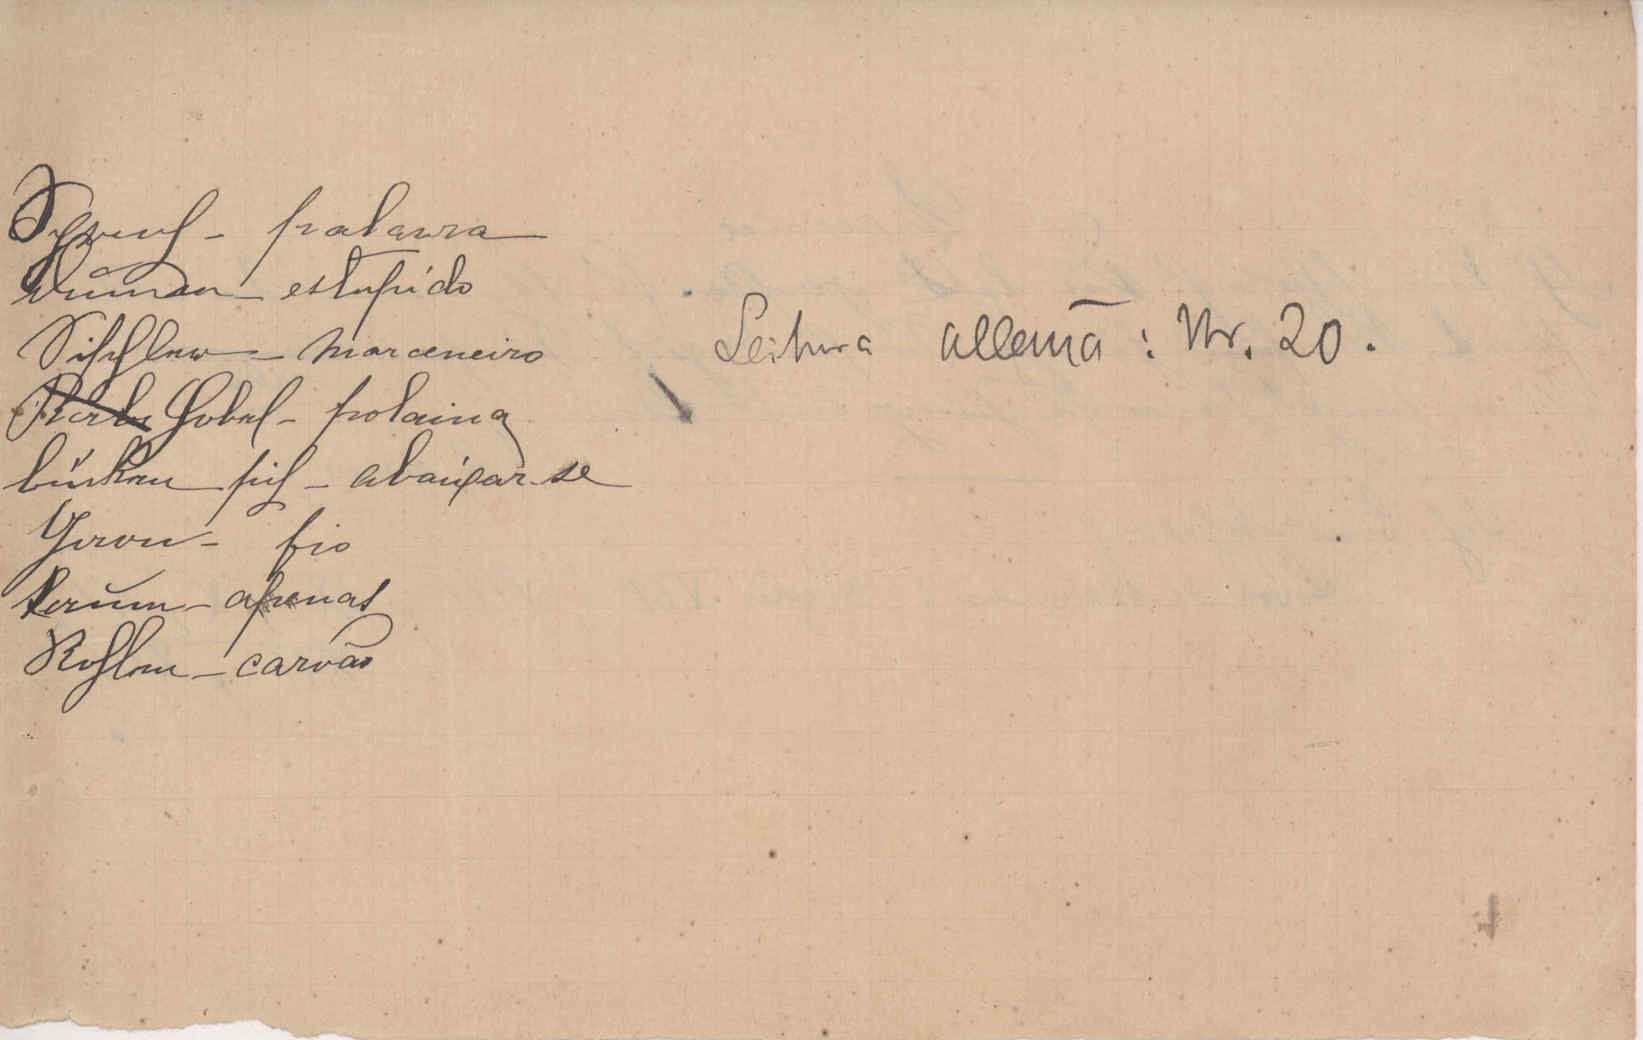 Spruch - palavra
estupido
Tischler - marceneiro
Hobel - polaina
bücken sich - abaixar-se
Garn - fio
kaum - apenas
Kohlen - carvão
Leitura allemã: Nr. 20.